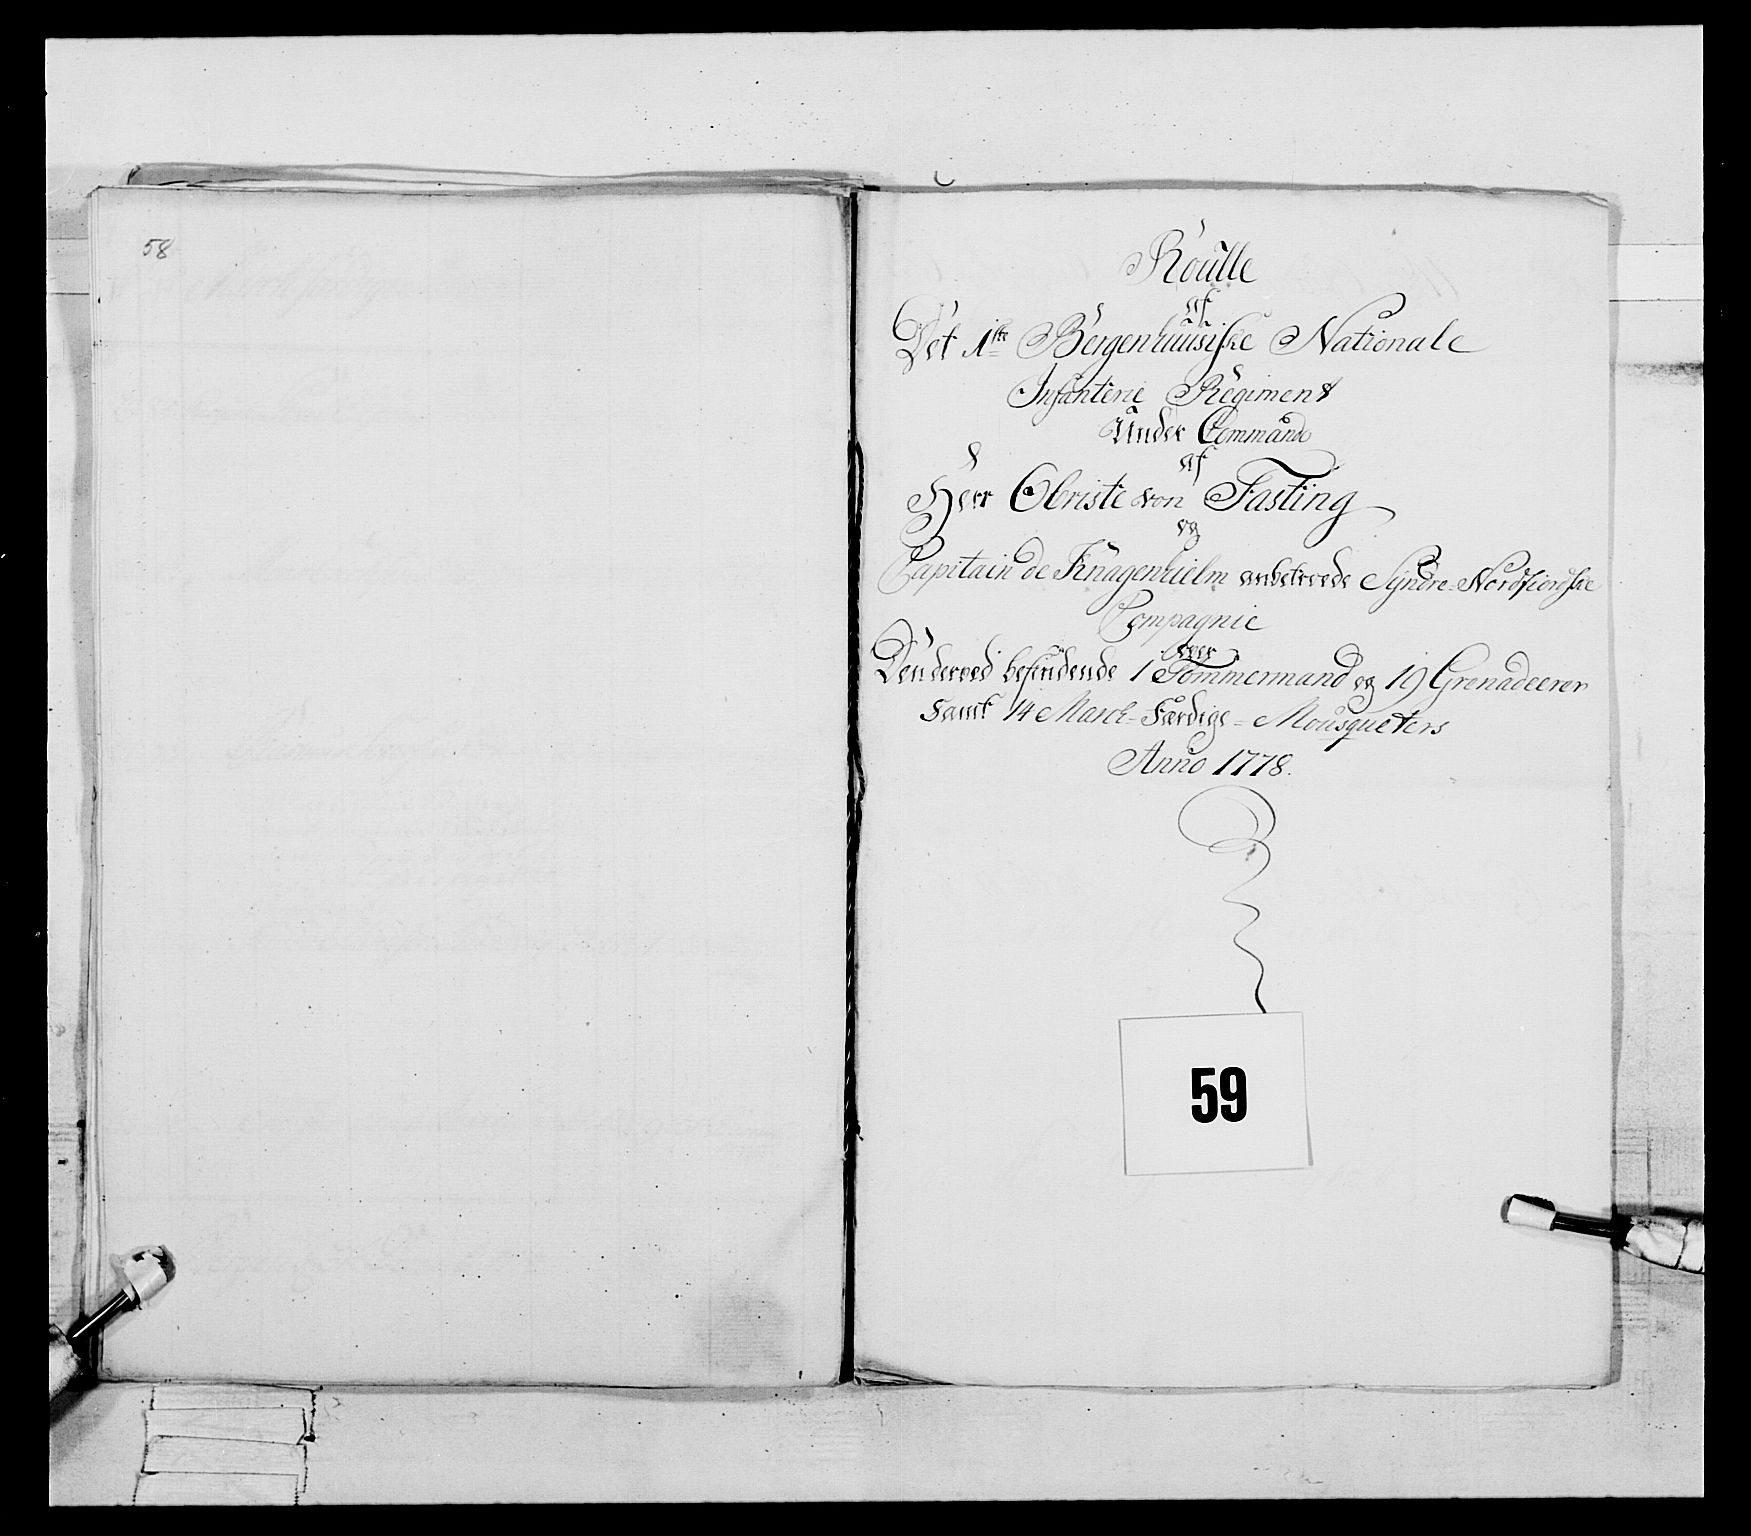 58
Roulle
af
Det 1ste Bergenhuusiske Nationale
Infanterie Regiment
Under Commando
af
Herr Obriste von Fasting
og
Capitain de Knagenhielm anbetroede Syndre-Nordfiordske
Compagnie
over
Den derved befindende 1 Tømmermand og 19 Grenadeerer
samt 14 March-Færdige-Mousqueters
Anno 1778.
59